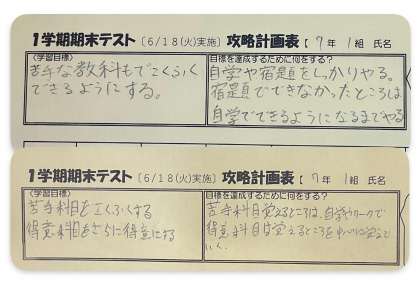 1学期期末テスト〔6/18(火)実施〕攻略計画表【7年 1組 氏名
〈学習目標〉
苦手な教科もてこくふく
できるようにする。
目標を達成するために何をする?
自学や宿題をしっかりやる。
宿題でできなかったところは
自学でできるようになるまでやる
1学期期末テスト〔6/18(火)実施〕攻略計画表【7年 1組 氏名
〈学習目標〉
苦手科目をこくふくする
得意科目をさらに得意にする
目標を達成するために何をする?
苦手科目覚えるところは、自学やワークで
得意科目は覚えるところを中心に覚えて
いく。